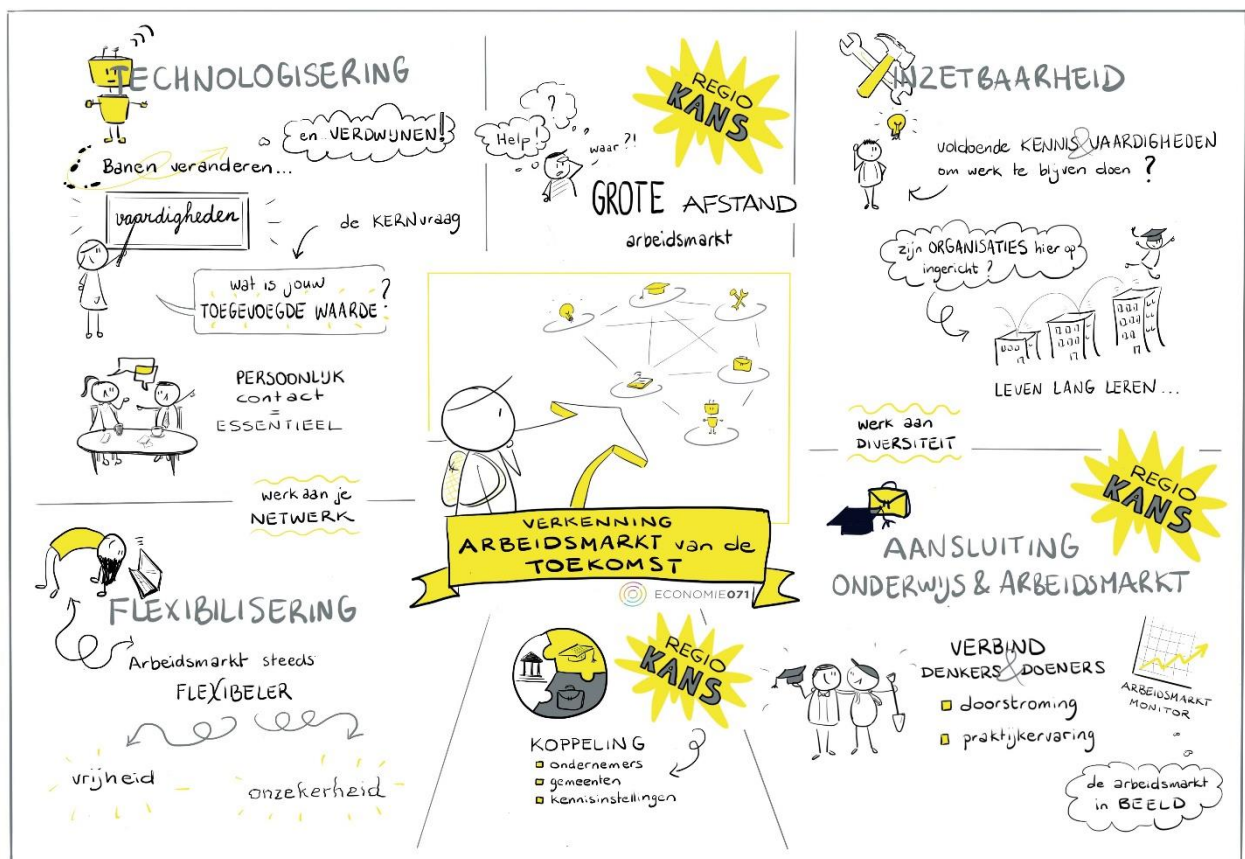 TECHNOLOGISERING
en VERDWIJNEN!
Banen veranderen...
vaardigheden
de KERNvraag
wat is jouw
TOEGEVOEGDE WAARDE?
PERSOONLIJK
contact
=
ESSENTIEEL
werk aan je
NETWERK
REGIO
KANS
?
Help!
waar?!
GROTE AFSTAND
arbeidsmarkt
INZETBAARHEID
voldoende KENNIS & VAARDIGHEDEN
om werk te blijven doen?
zijn ORGANISATIES hier op
ingericht?
LEVEN LANG LEREN...
werk aan
DIVERSITEIT
VERKENNING
ARBEIDSMARKT van de
TOEKOMST
ECONOMIE071
FLEXIBILISERING
Arbeidsmarkt steeds
FLEXIBELER
vrijheid
onzekerheid
REGIO
KANS
KOPPELING
ondernemers
gemeenten
kennisinstellingen
REGIO
KANS
AANSLUITING
ONDERWIJS & ARBEIDSMARKT
VERBIND
DENKERS & DOENERS
doorstroming
praktijkervaring
ARBEIDSMARKT
MONITOR
de arbeidsmarkt
in BEELD